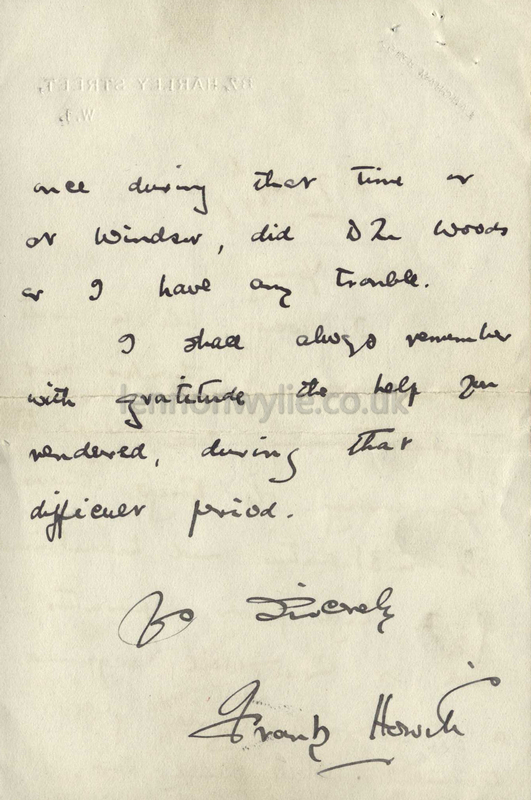 87, HARLEY STREET,
W.1.
once during that time or
at Windsor, did Dr Woods
or I have any trouble.
I shall always remember
with gratitude the help you
lennonwylie.co.uk
rendered, during that
difficult period.
Sincerely
Frank Howitt